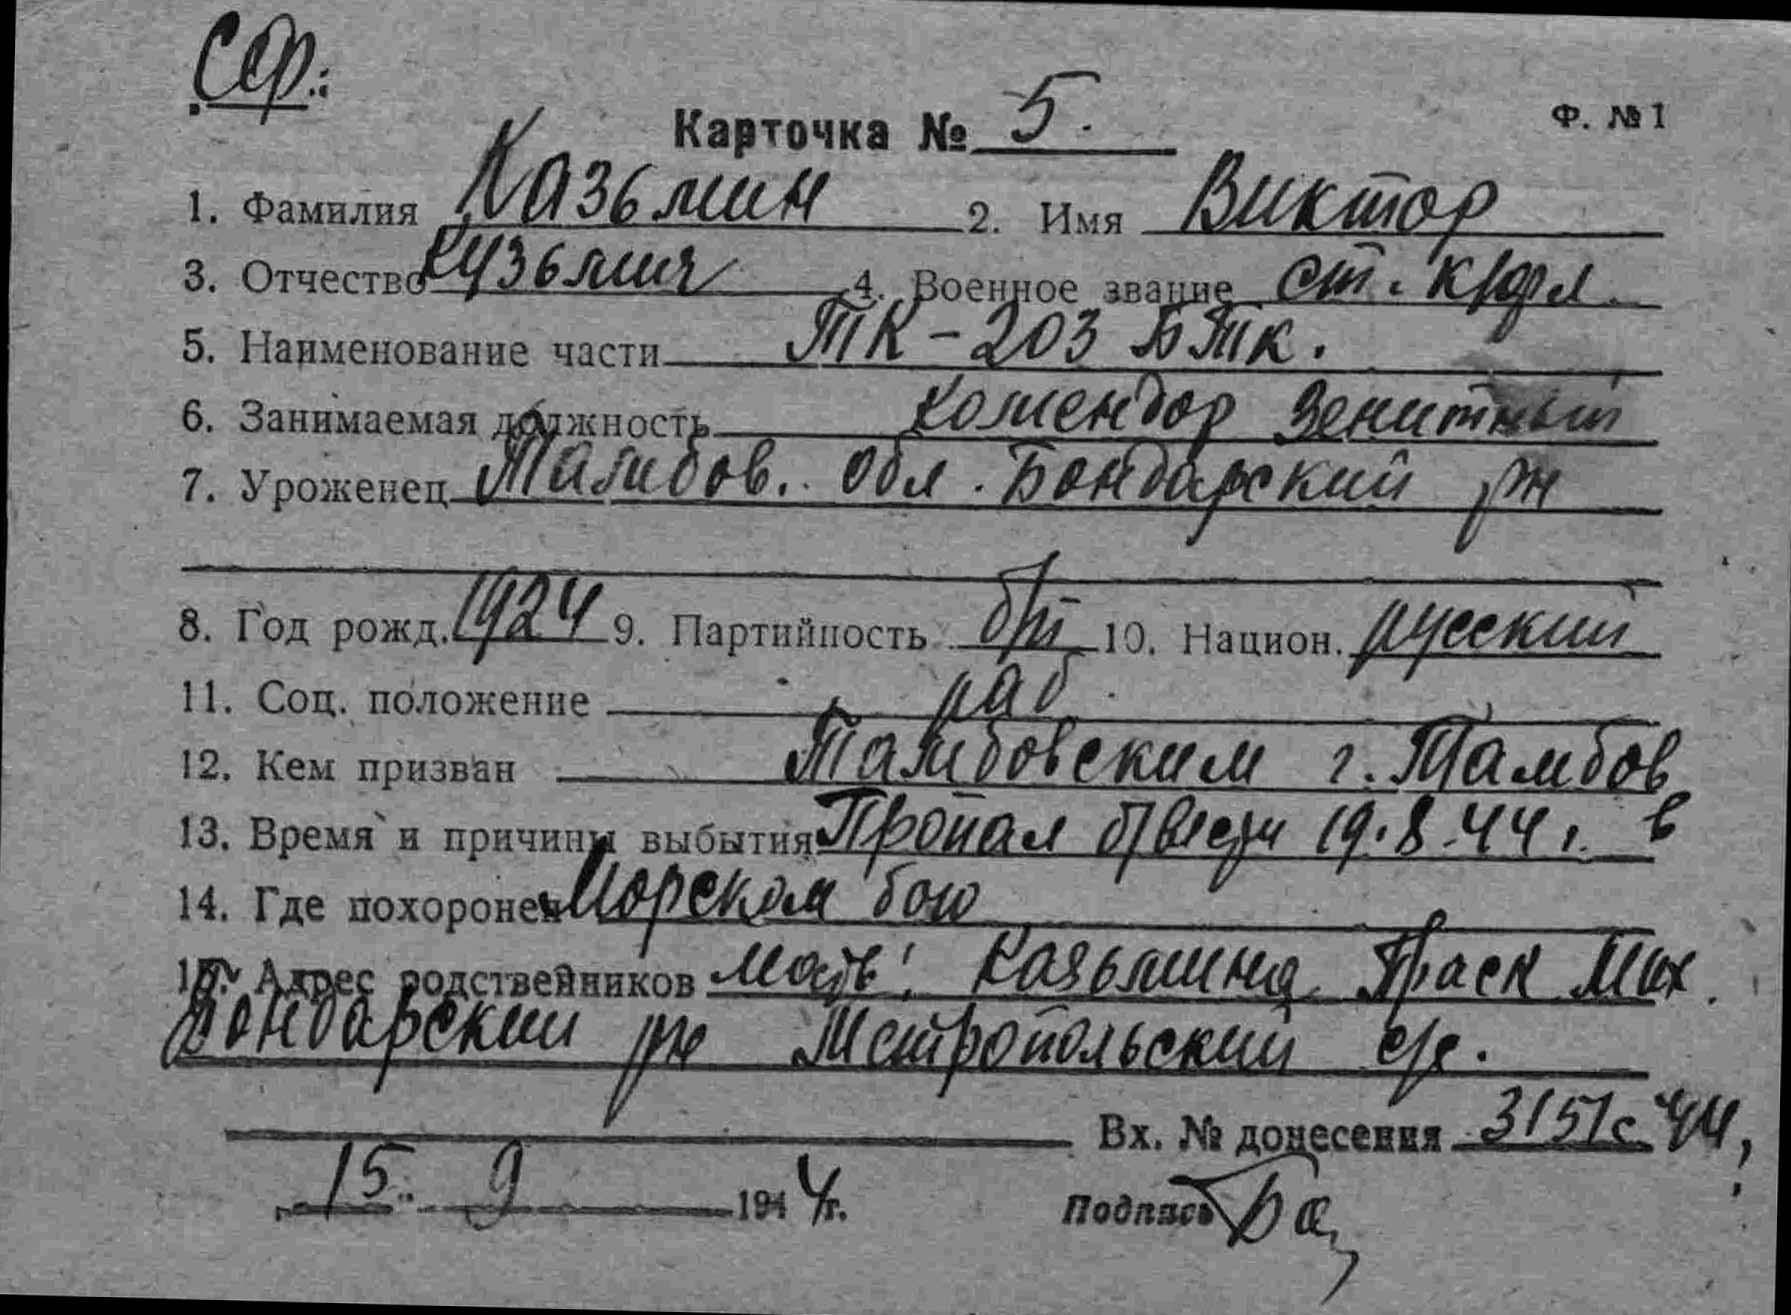 Сф.:
Карточка № 5. Ф. №1
1. Фамилия Казьмин 2. Имя Виктор
3. Отчество Кузьмич 4. Военное звание ст. к/фл.
5. Наименование части ТК-203 БТК.
6. Занимаемая должность комендор зенитный
7. Уроженец Тамбов. обл. Бондарский рн
8. Год рожд. 1924 9. Партийность б/п 10. Национ. русский
11. Соц. положение раб.
12. Кем призван Тамбовским г. Тамбов
13. Время и причины выбытия Пропал б/вести 19.8.44 г. в
14. Где похоронен Морском бою
15. Адрес родственников мать: Казьмина Праск Мих.
Бондарский рн Митропольский с/с.
Вх. № донесения 3151с 44,
15. 9 1944г. Подпись